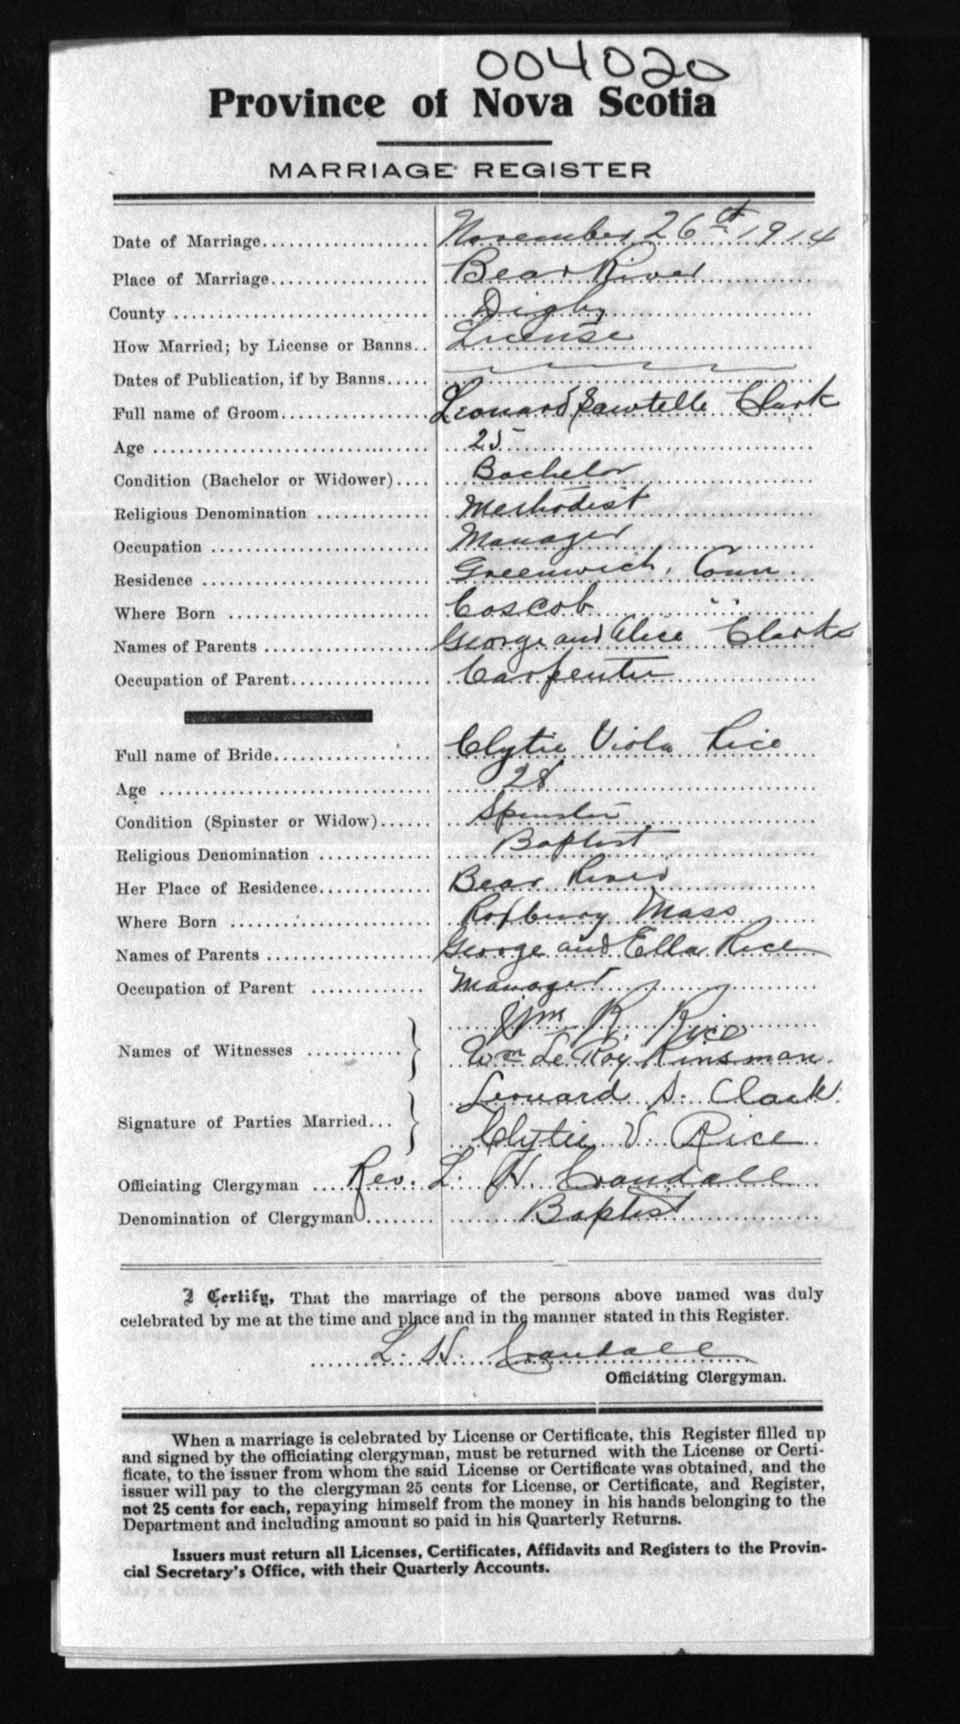 004020
Province of Nova Scotia
MARRIAGE REGISTER
Date of Marriage November 26th 1914
Place of Marriage Bear River
County Digby
How Married; by License or Banns License
Dates of Publication, if by Banns
Full name of Groom Leonard Sawtelle Clark
Age 25
Condition (Bachelor or Widower) Bachelor
Religious Denomination Methodist
Occupation Manager
Residence Greenwich, Conn
Where Born Coscob " "
Names of Parents George and Alice Clark
Occupation of Parent Carpenter
Full name of Bride Clytie Viola Rice
Age 28
Condition (Spinster or Widow) Spinster
Religious Denomination Baptist
Her Place of Residence Bear River
Where Born Roxbury Mass
Names of Parents George and Ella Rice
Occupation of Parent Manager
Wm R. Rice
Names of Witnesses
Wm Le Roy Kinsman.
Leonard S. Clark.
Signature of Parties Married
Clytie V. Rice
Officiating Clergyman Rev. L. H. Crandall
Denomination of Clergyman Baptist
I Certify, That the marriage of the persons above named was duly
celebrated by me at the time and place and in the manner stated in this Register.
L. H. Crandall
Officiating Clergyman.
When a marriage is celebrated by License or Certificate, this Register filled up
and signed by the officiating clergyman, must be returned with the License or Certi-
ficate, to the issuer from whom the said License or Certificate was obtained, and the
issuer will pay to the clergyman 25 cents for License, or Certificate, and Register,
not 25 cents for each, repaying himself from the money in his hands belonging to the
Department and including amount so paid in his Quarterly Returns.
Issuers must return all Licenses, Certificates, Affidavits and Registers to the Provin-
cial Secretary's Office, with their Quarterly Accounts.